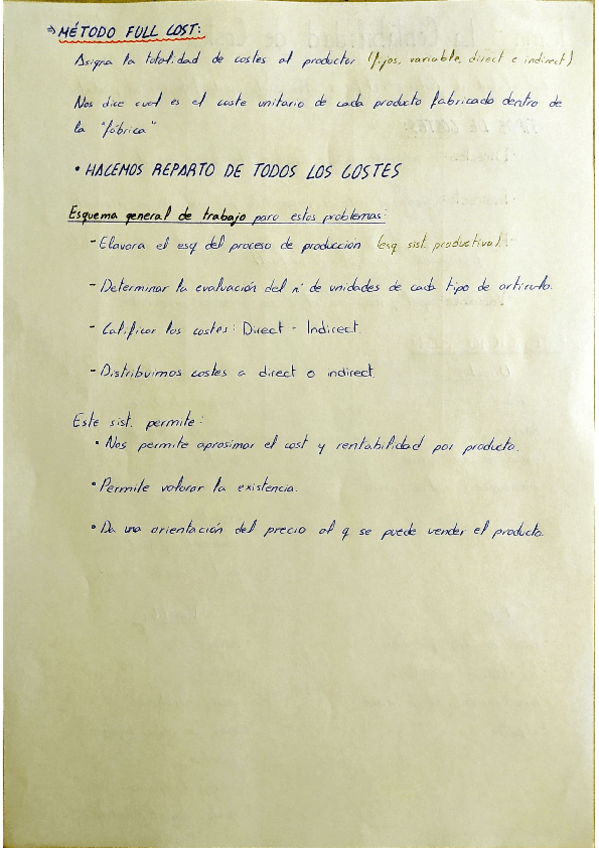 ⇒ MÉTODO FULL COST:
Asigna la totalidad de costes al productor (fijos, variable, direct e indirect)
Nos dice cual es el coste unitario de cada producto fabricado dentro de
la "fábrica"
• HACEMOS REPARTO DE TODOS LOS COSTES
Esquema general de trabajo para estos problemas:
- Elavora el esq del proceso de producción (esq sist. productivo).
- Determinar la evaluación del nº de unidades de cada tipo de articulo.
- Calificar los costes: Direct - Indirect.
- Distribuimos costes a direct o indirect.
Este sist. permite:
• Nos permite aprosimar el cost y rentabilidad por producto.
• Permite valorar la existencia.
• Da una orientación del precio al q se puede vender el producto.